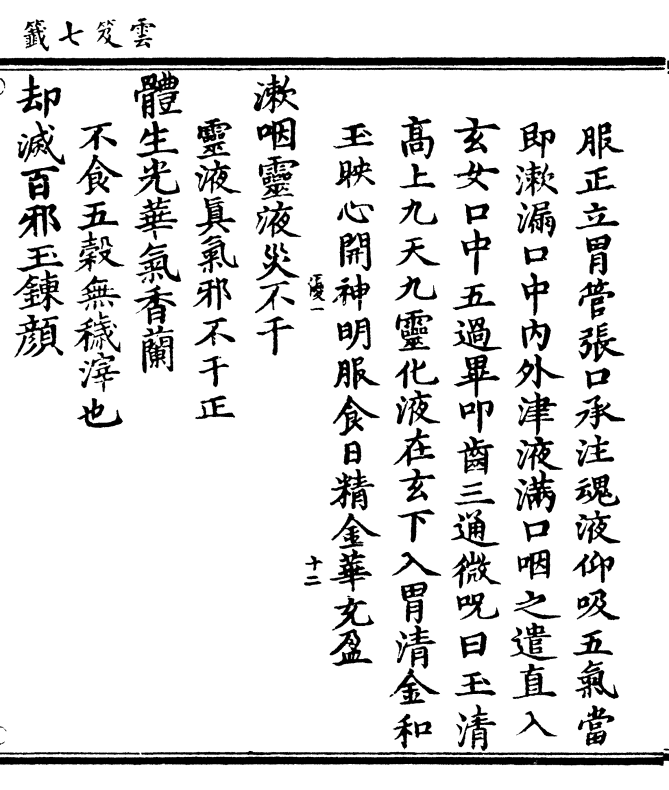 雲笈七籤
服正立胃管張口承注魂液仰吸五氣當
即漱漏口中內外津液滿口咽之遣直入
玄女口中五過畢叩齒三通微呪曰玉清
高上九天九靈化液在玄下入胃清金和
玉映心開神明服食日精金華充盈
漱咽靈液災不干
靈液真氣邪不干正
體生光華氣香蘭
不食五穀無穢滓也
却滅百邪玉鍊顏
十二